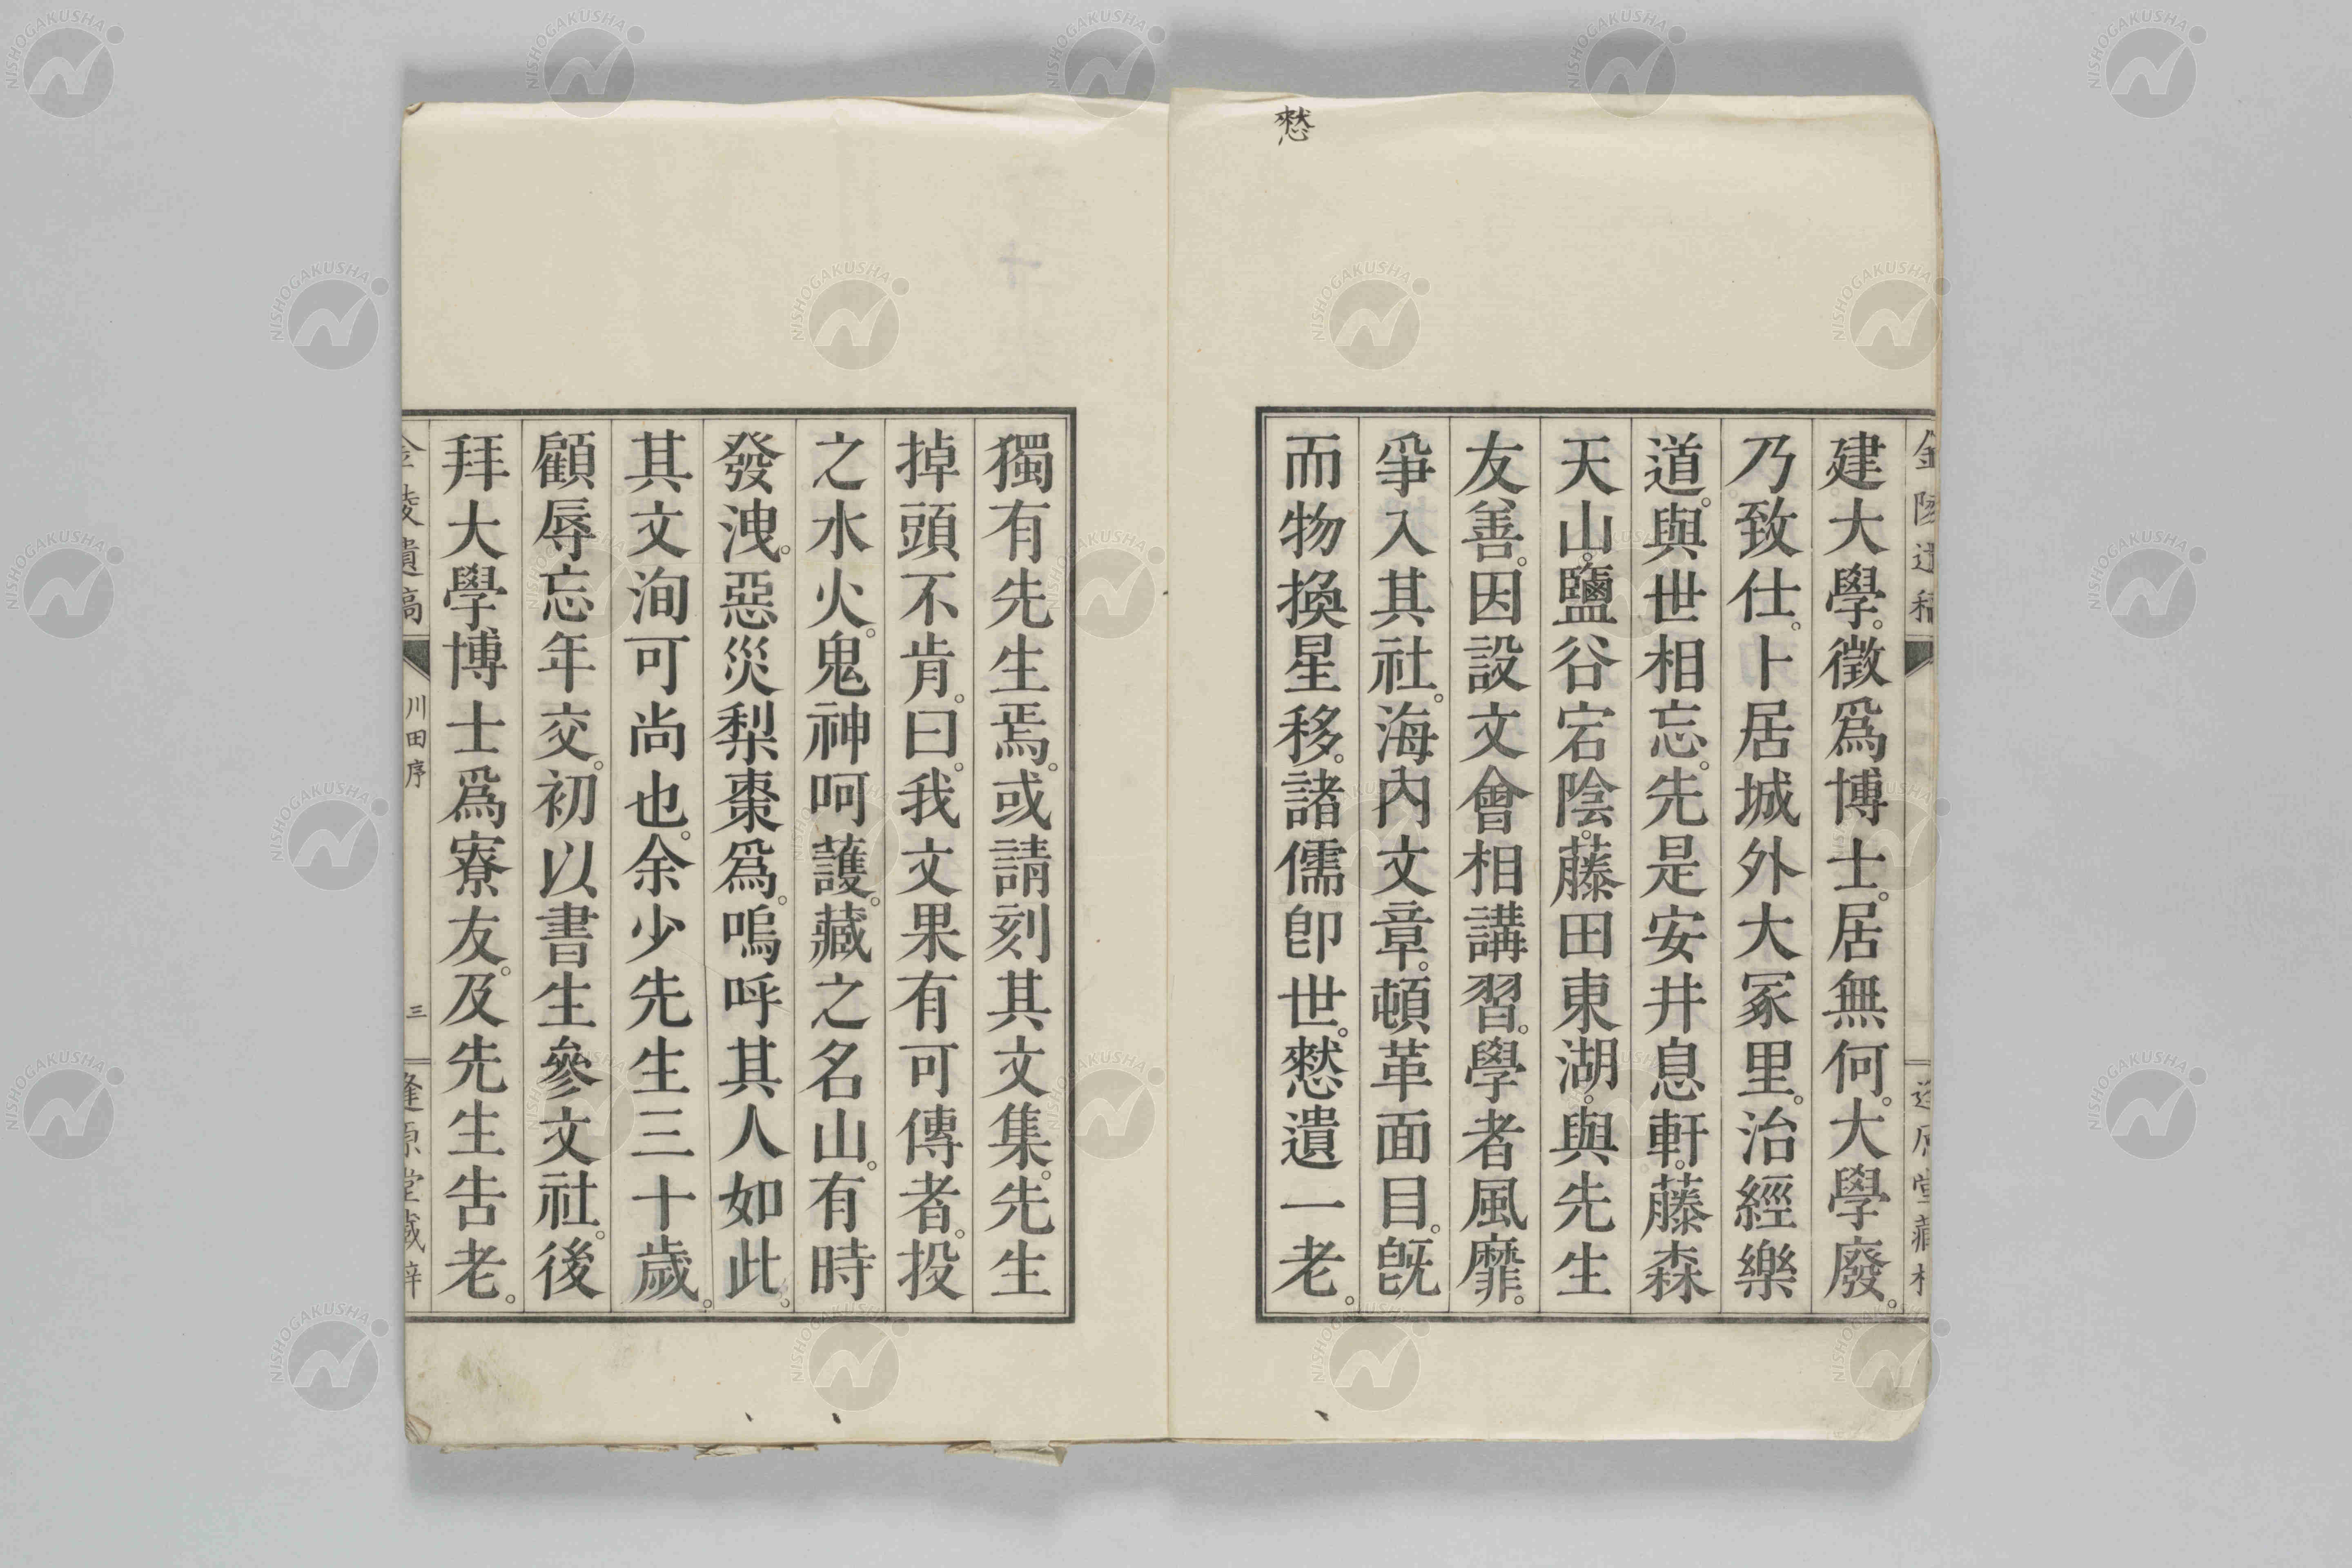 憖
建大學。徵爲博士。居無何。大學廢。
乃致仕。卜居城外大冢里。治經樂
道。與世相忘。先是安井息軒。藤森
天山。鹽谷宕陰。藤田東湖。與先生
友善。因設文會相講習。學者風靡。
爭入其社。海內文章。頓革面目。旣
而物換星移。諸儒卽世。憖遺一老。
獨有先生焉。或請刻其文集。先生
掉頭不肯。曰。我文果有可傳者。投
之水火。鬼神呵護。藏之名山。有時
發洩。惡災梨棗爲。嗚呼其人如此。
其文洵可尚也。余少先生三十歲。
顧辱忘年交。初以書生參文社。後
拜大學博士爲寮友。及先生告老。
金陵遺稿 川田序 三 逢原堂藏梓
NISHOGAKUSHA